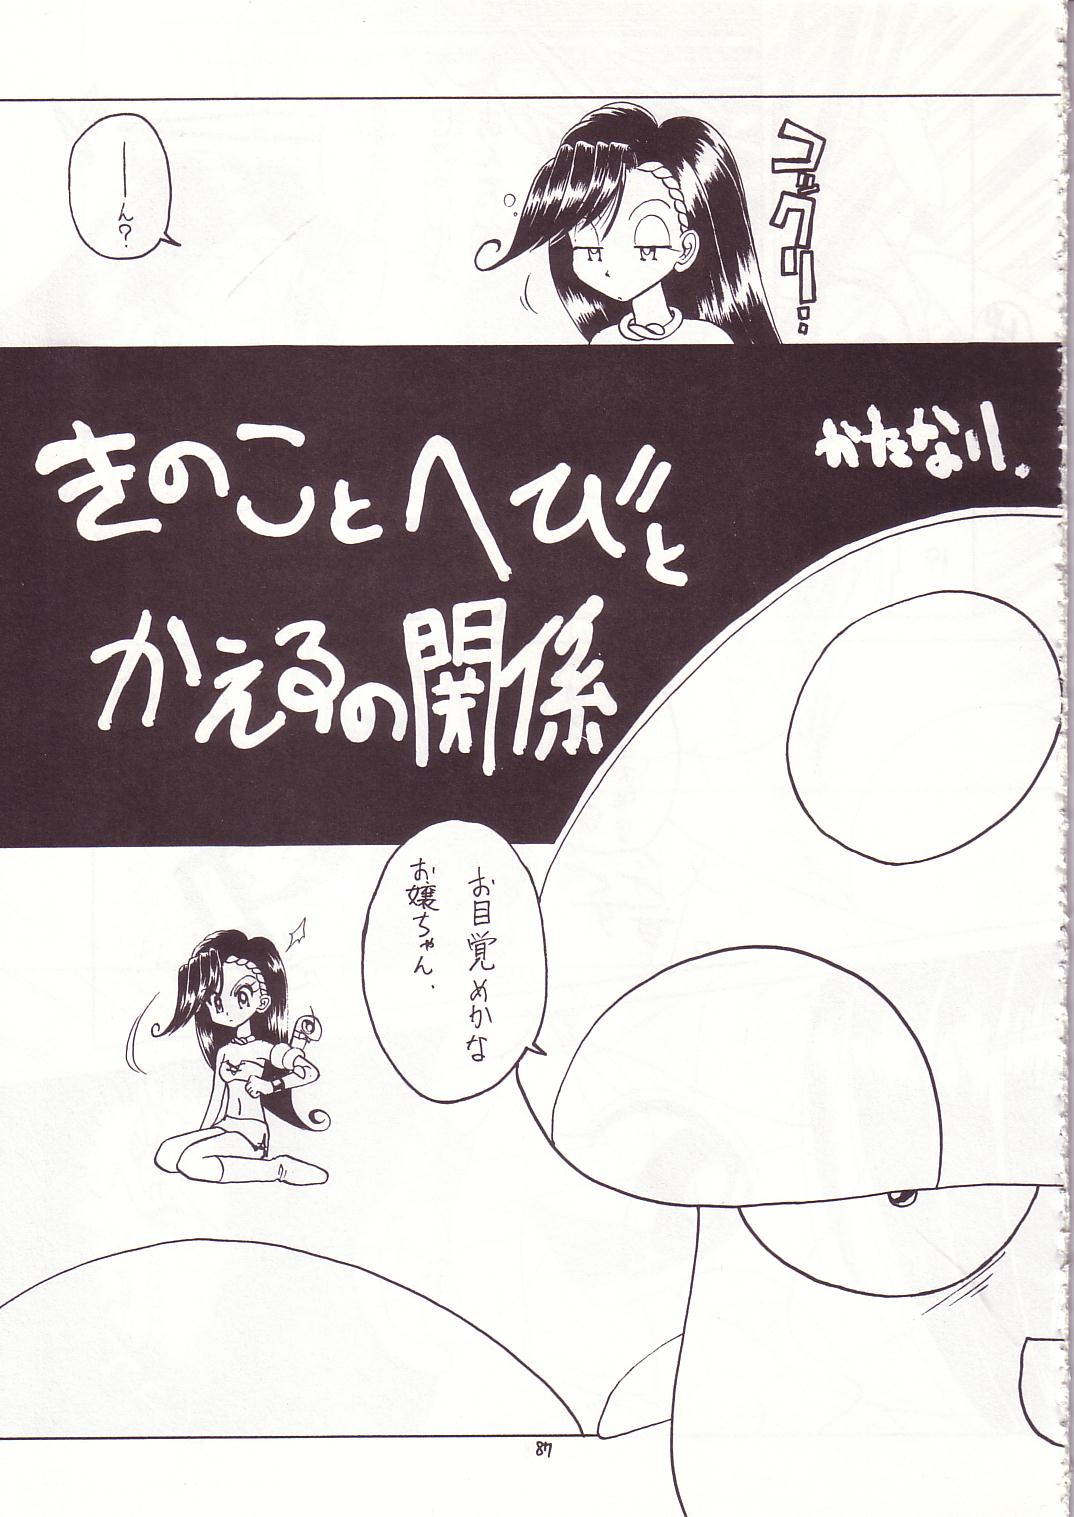 ーん?
かたなリ.
きのことへびと
かえるの関係
お目覚めかな
お嬢ちゃん.
87